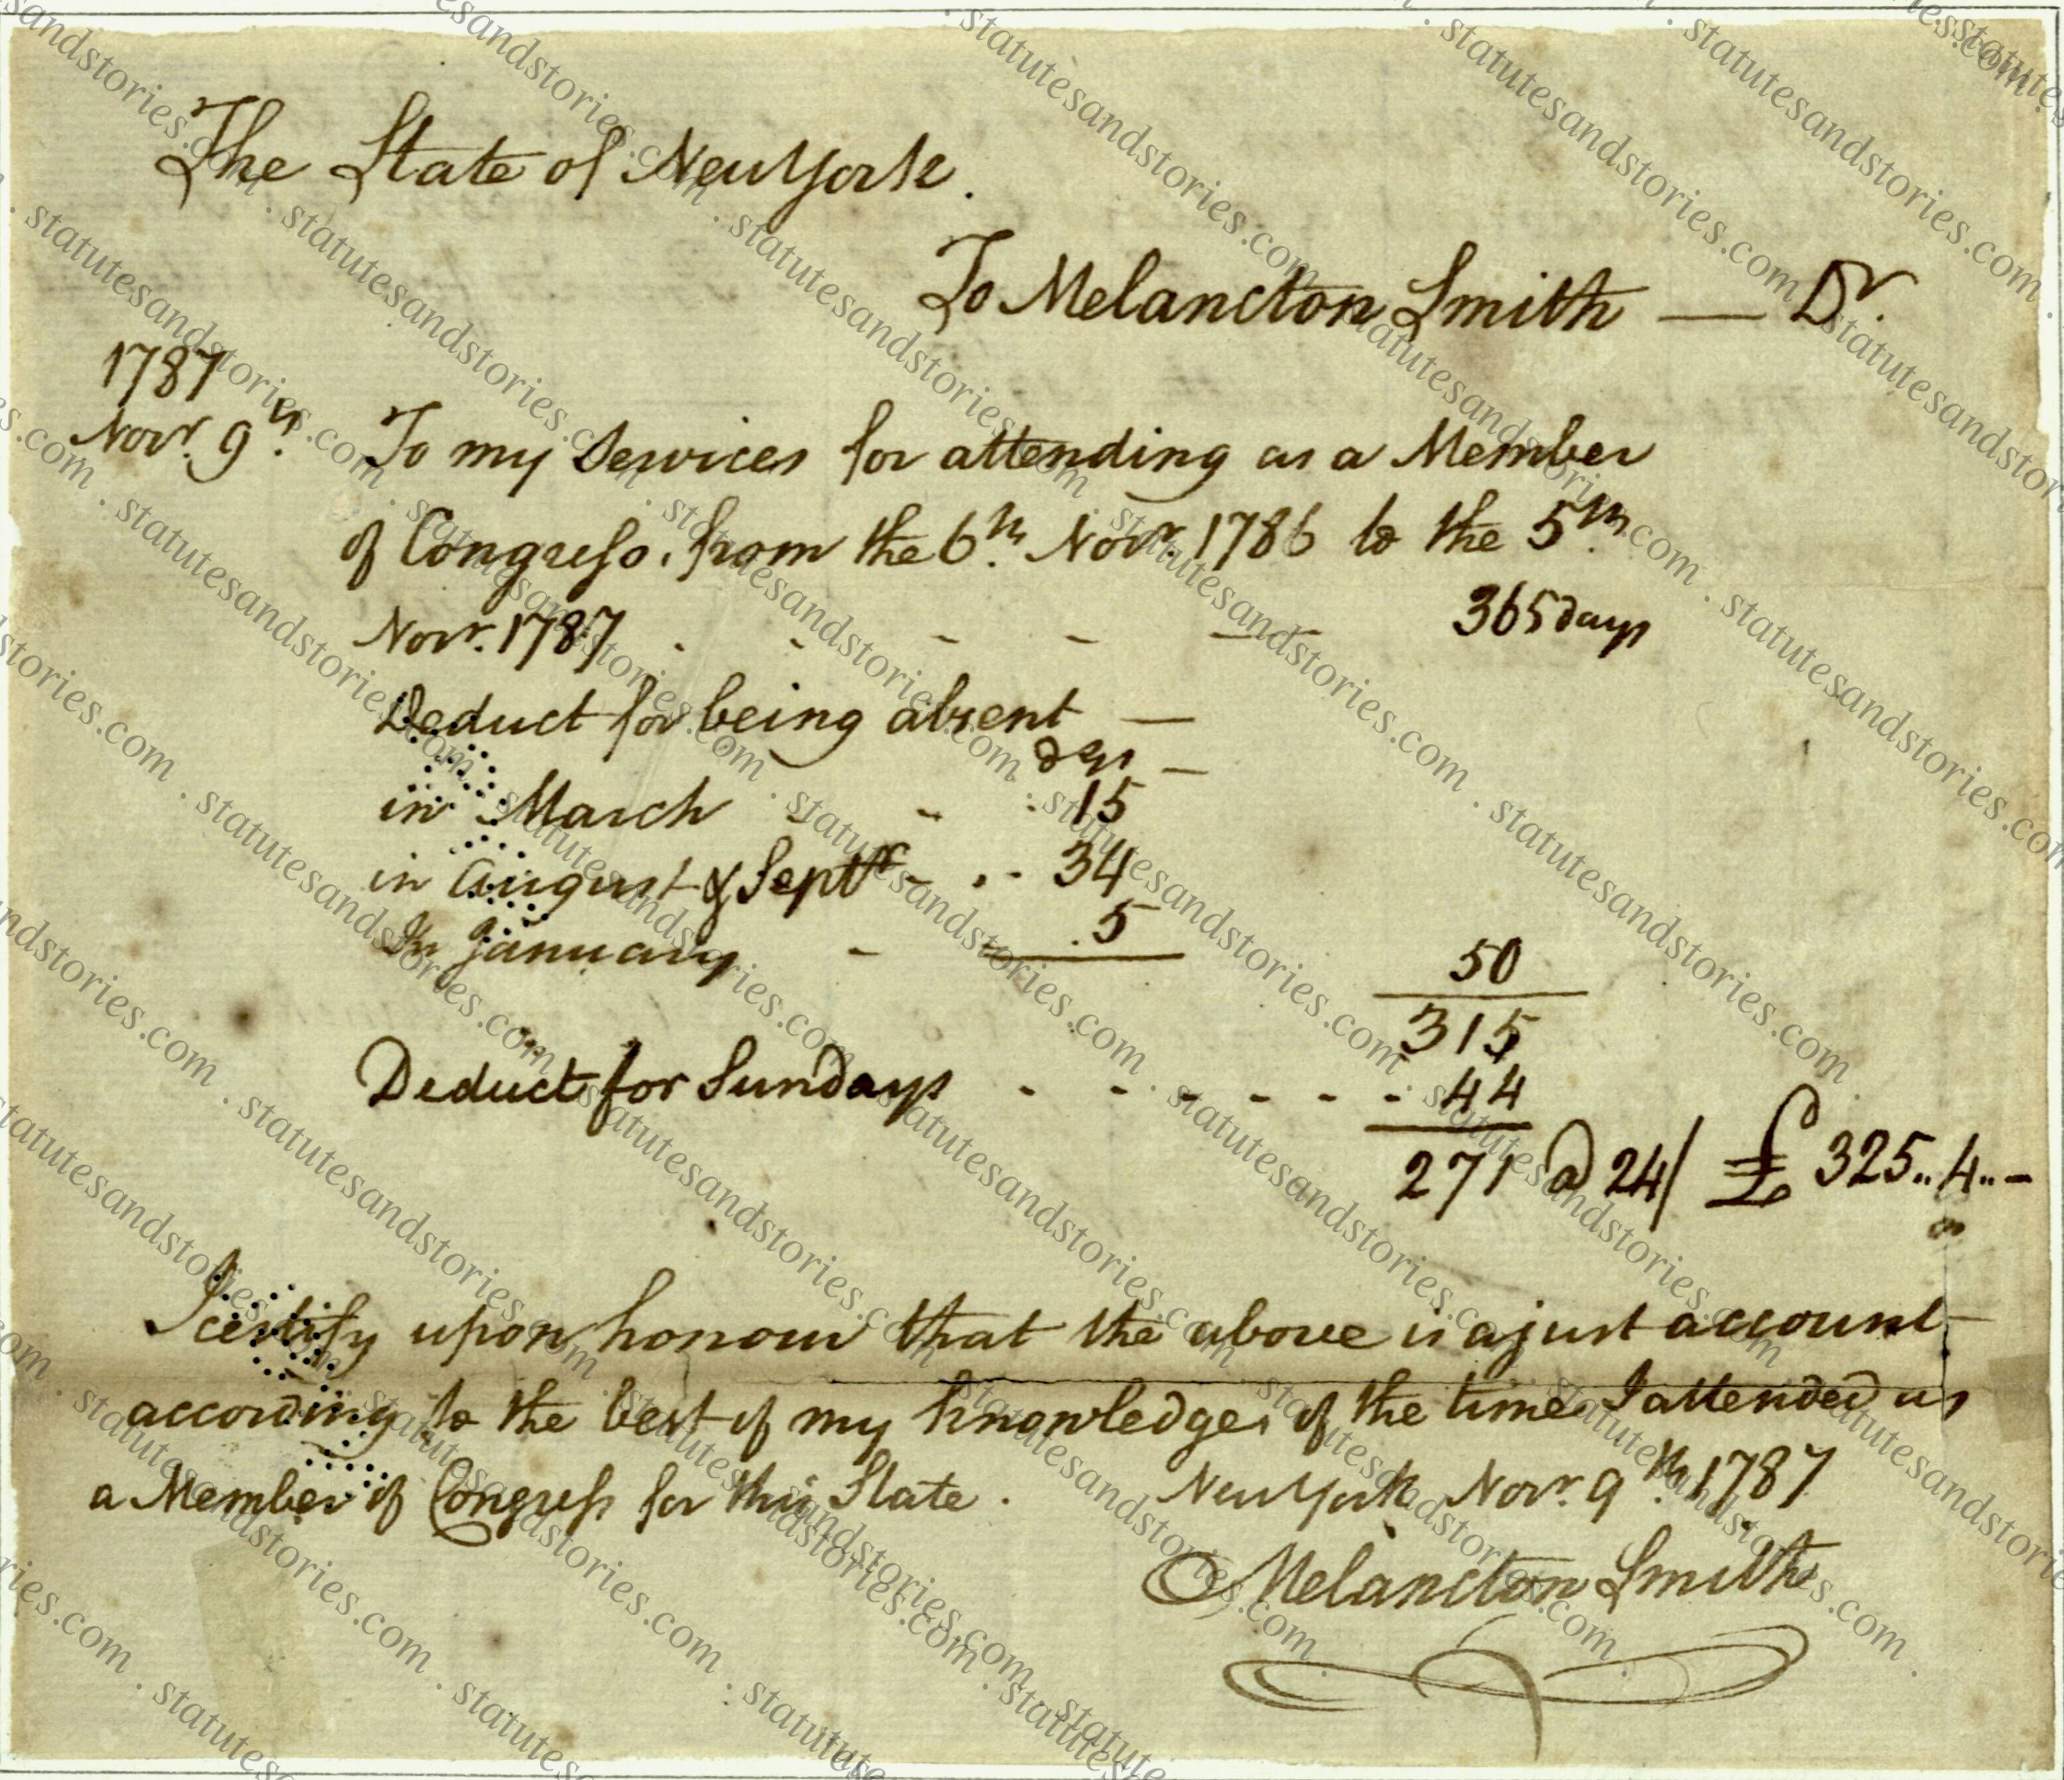 The State of New York.
To Melancton Smith — Dr.
1787
Novr. 9th. To my Services for attending as a Member
of Congress, from the 6th. Novr. 1786 to the 5th.
Novr. 1787 - - - - — 365 days
Deduct for being absent —
dys —
in March - - 15
in August & Septr - - 34
In January - 5 50
315
Deduct for Sundays - - - - - - 44
271 @ 24/ £ 325..4..-
I certify upon honour that the above is a just account
according to the best of my knowledge, of the time I attended as
a Member of Congress for this State. New York Novr. 9th. 1787
Melancton Smith
statutesandstories.com